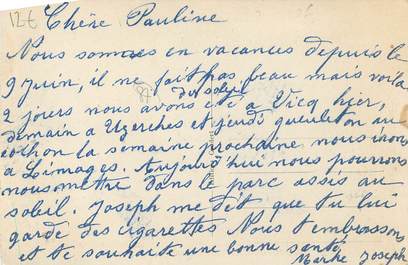 12€ Chère Pauline
Nous sommes en vacances depuis le
9 juin, il ne fait pas beau mais voila
du soleil
2 jours nous avons été a Vicq hier,
demain a Uzerches et jeudi gueuleton au
cochon la semaine prochaine nous irons
a Limages. Aujourd'hui nous pourrons
nous mettre dans le parc assis au
soleil. Joseph me dit que tu lui
garde des cigarettes Nous t'embrassons
et te souhaite une bonne santé
Joseph